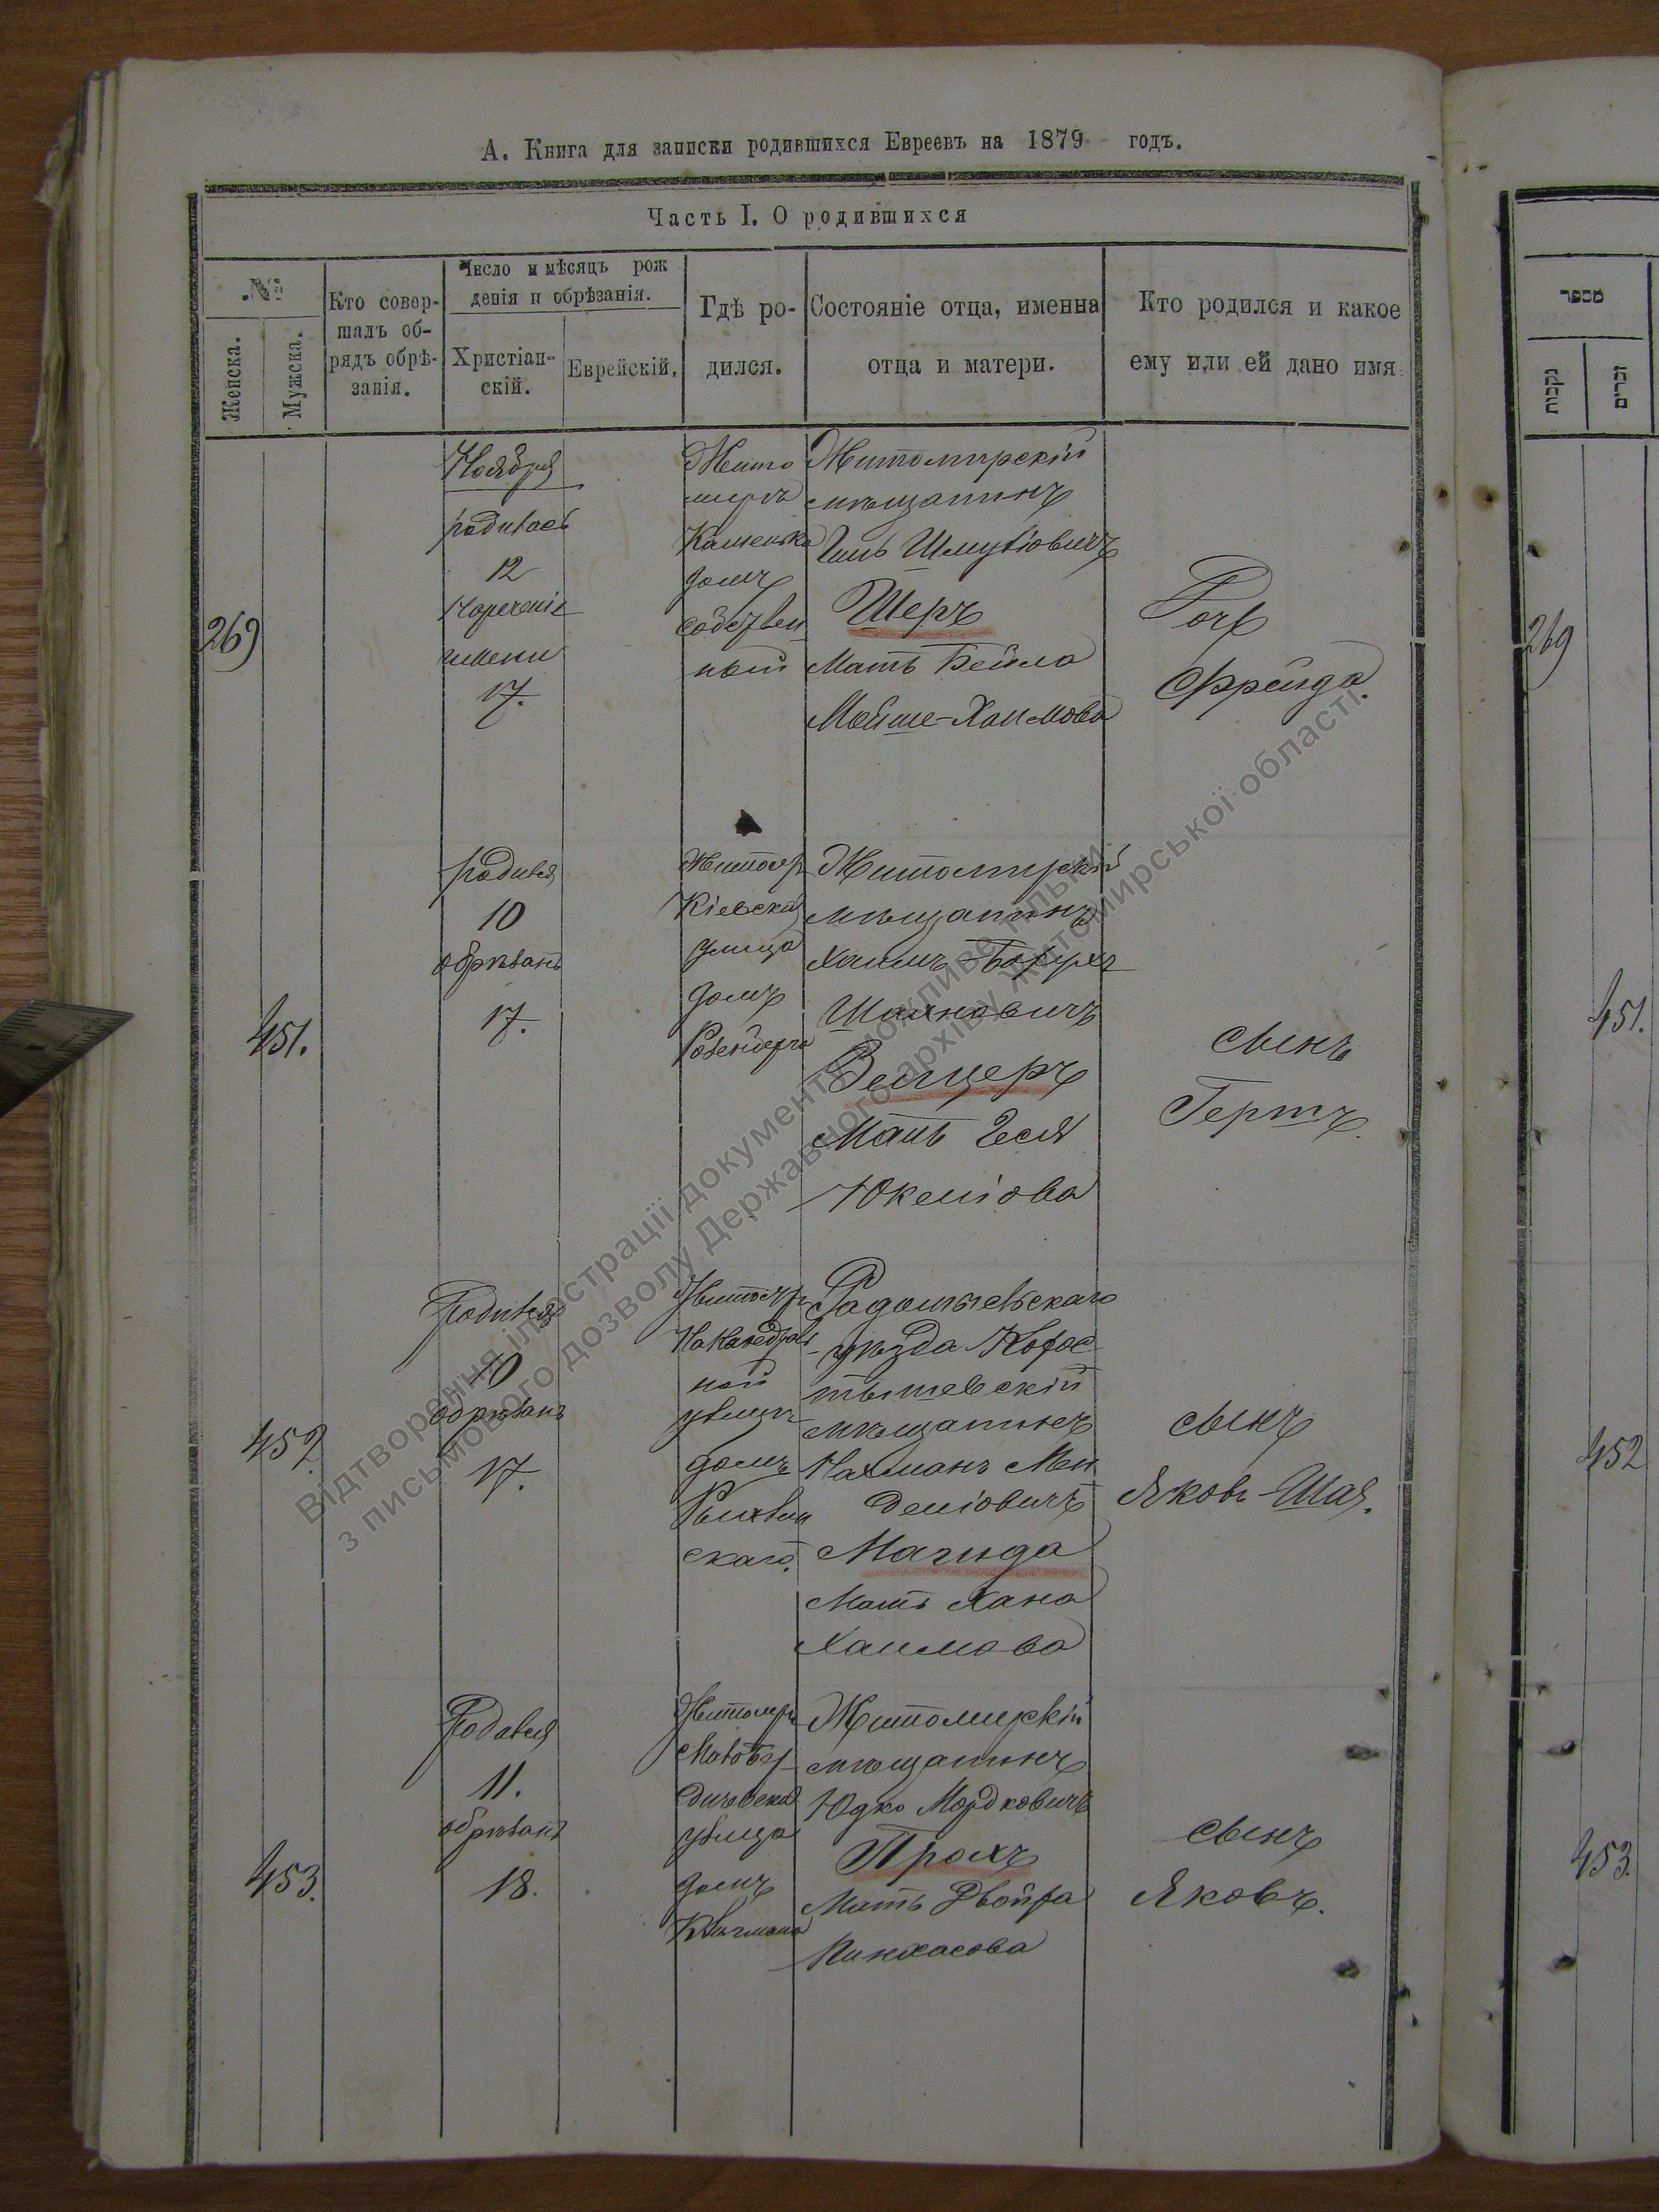 А. Книга для записки родившихся Евреевъ на 1879 годъ.
Часть I. О родившихся
№
Женска.
Мужска.
Кто совер-
шалъ об-
рядъ обрѣ-
занія.
Число и мѣсяцъ рож
денія и обрѣзанія.
Христіан-
скій.
Еврейскій.
Гдѣ ро-
дился.
Состояніе отца, именна
отца и матери.
Кто родился и какое
ему или ей дано имя
269
Ноября
родилась
12
Нареченіе
имени
17.
Жито
миръ
Каменка
домъ
собствен
ный
Житомирскій
мѣщанинъ
Шмуліовичъ
Шеръ
Мать Бейла
Мойше-Хаимова
Дочь
Фрейда.
451.
родился
10
обрѣзанъ
17.
Житомр
Кіевская
улица
домъ
Житомирскій
мѣщанинъ
Хаимъ-Борухъ
Шаяновичъ
Зельцеръ
Мать Геся
Юкеліова
сынъ
Гершъ.
452.
Родился
10
обрѣзанъ
17.
Житомр
На Кафедраль
ной
улицѣ
домъ
скаго.
Радомысльскаго
уѣзда Корос
тышевскій
мѣщанинъ
Нахманъ Мен
деліовичъ
Магида
Мать Хана
Хаимова
сынъ
Яковъ-Шая.
453.
Родился
11.
обрѣзанъ
18.
Житомръ
Малобер
дичевская
улица
домъ
Житомирскій
мѣщанинъ
Юдко Мордковичъ
Прохъ
Мать Двойра
Пинхасова
сынъ
Яковъ.
מספר
נקבות
זכרים
269
451.
452
453.
Відтворення ілюстрації документу можливе тільки
з письмового дозволу Державного архіву Житомирської області.